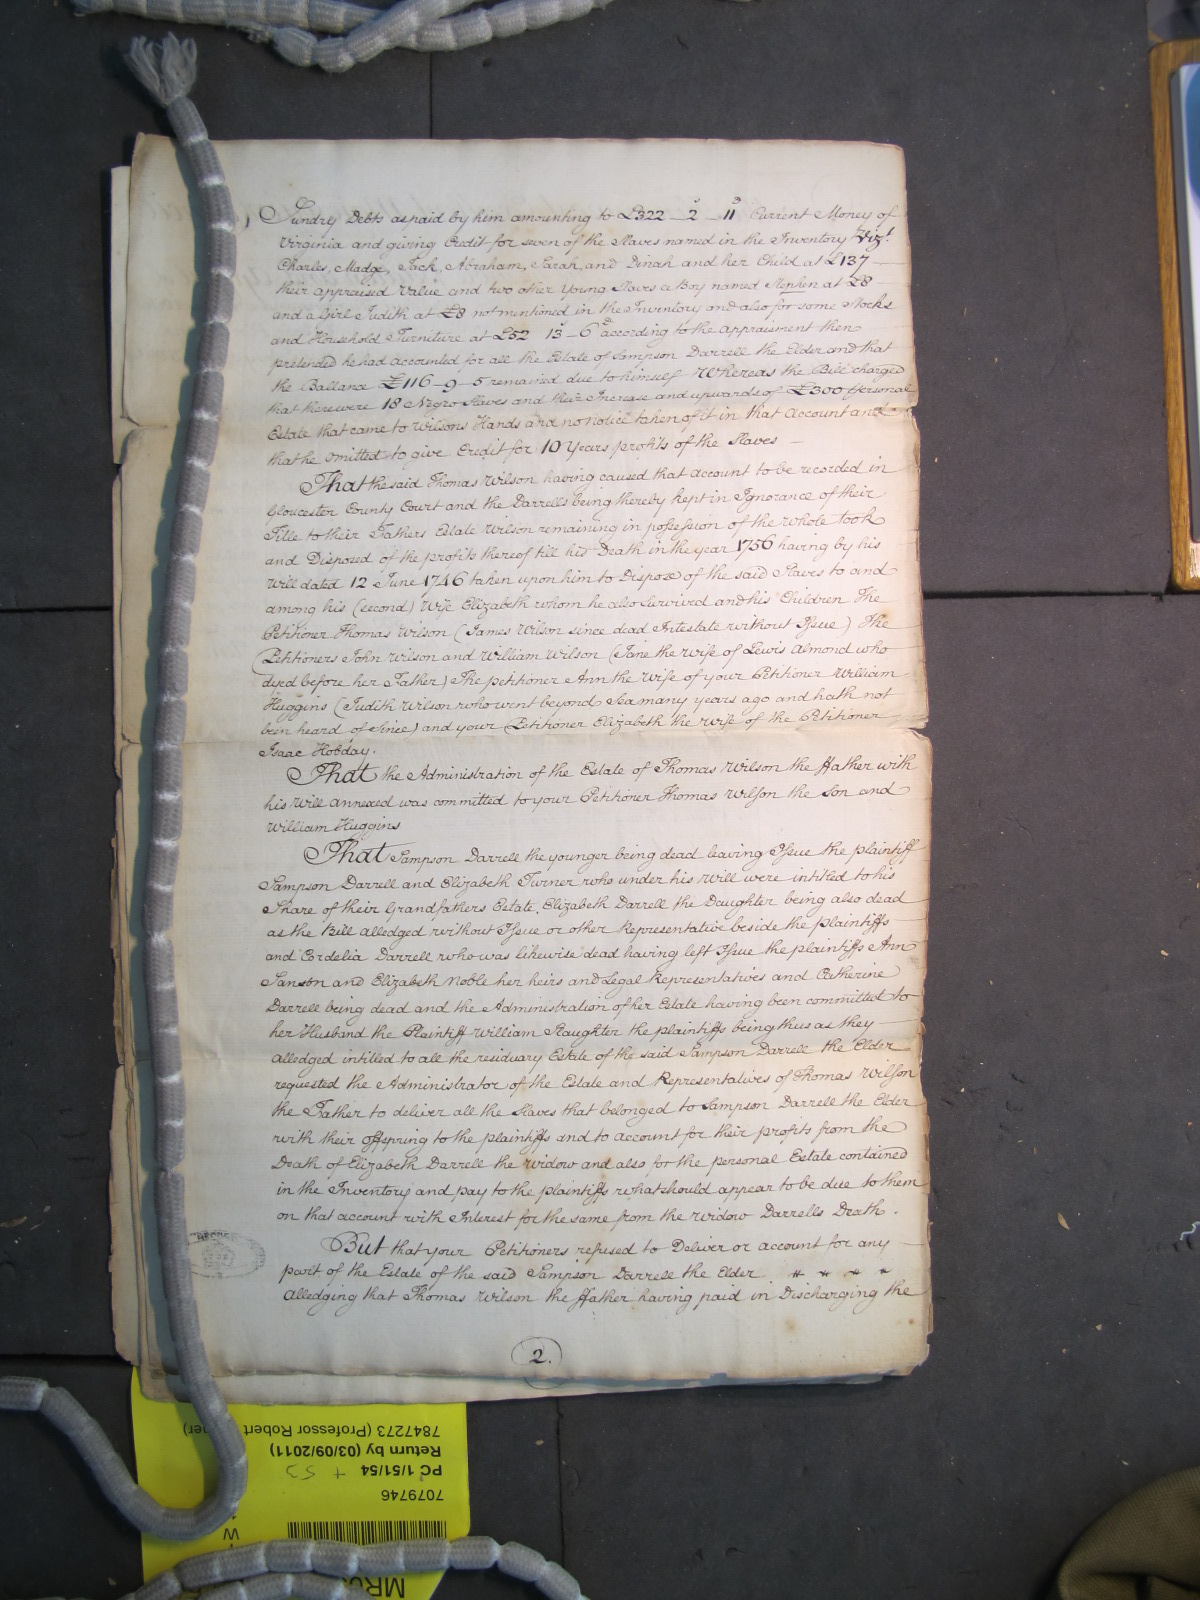 Sundry Debts as paid by him amounting to £322 - 2 - 11 Current Money of
Virginia and giving Credit for seven of the Slaves named in the Inventory Vizt.
Charles, Madge, Jack, Abraham, Sarah, and Dinah and her Child at £137
their appraised Value and two other Young Slaves a Boy named Stephen at £8
and a Girl Judith at £8 not mentioned in the Inventory and also for some Stocks
and Household Furniture at £52 13 - 6 according to the appraisment then
pretended he had accounted for all the Estate of Sampson Darrell the Elder and that
the Ballance £116 - 9 - 5 remained due to himself Whereas the Bill charged
that there were 18 Negro Slaves and their Increase and upwards of £300 personal
Estate that came to Wilsons Hands and no notice taken of it in that Account and
that he omitted to give Credit for 10 Years profits of the Slaves
That the said Thomas Wilson having caused that account to be recorded in
Gloucester County Court and the Darrells being thereby kept in Ignorance of their
Title to their Fathers Estate Wilson remaining in possession of the whole took
and Disposed of the profits thereof till his Death in the year 1756 having by his
Will dated 12 June 1746 taken upon him to Dispose of the said Slaves to and
among his (second) Wife Elizabeth whom he also Survived and his Children The
Petitioner Thomas Wilson (James Wilson since dead Intestate without Issue) The
Petitioners John Wilson and William Wilson (Jane the wife of Lewis Almond who
dyed before her Father) The petitioner Ann the wife of your Petitioner William
Huggins (Judith Wilson who went beyond Sea many years ago and hath not
been heard of Since) and your Petitioner Elizabeth the wife of the Petitioner
Isaac Hobday.
That the Administration of the Estate of Thomas Wilson the ffather with
his Will annexed was committed to your Petitioner Thomas Wilson the Son and
William Huggins
That Sampson Darrell the younger being dead leaving Issue the plaintiff
Sampson Darrell and Elizabeth Turner who under his Will were intitled to his
Share of their Grandfathers Estate. Elizabeth Darrell the Daughter being also dead
as the Bill alledged without Issue or other Representative beside the plaintiffs
and Cordelia Darrell who was likewise dead having left Issue the plaintiffs Ann
Sanson and Elizabeth Noble her heirs and Legal Representatives and Catherine
Darrell being dead and the Administration of her Estate having been committed to
her Husband the Plaintiff William Slaughter the plaintiffs being thus as they
alledged intitled to all the residuary Estate of the said Sampson Darrell the Elder
requested the Administrator of the Estate and Representatives of Thomas Wilson
the Father to deliver all the Slaves that belonged to Sampson Darrell the Elder
with their offspring to the plaintiffs and to account for their profits from the
Death of Elizabeth Darrell the widow and also for the personal Estate contained
in the Inventory and pay to the plaintiffs what should appear to be due to them
on that account with Interest for the same from the widow Darrells Death.
But that your Petitioners refused to Deliver or account for any
part of the Estate of the said Sampson Darrell the Elder
Alledging that Thomas Wilson the ffather having paid in Discharging the
2.
7847273 (Professor Robert
Return by (03/09/2011)
PC 1/51/54 + 53
7079746